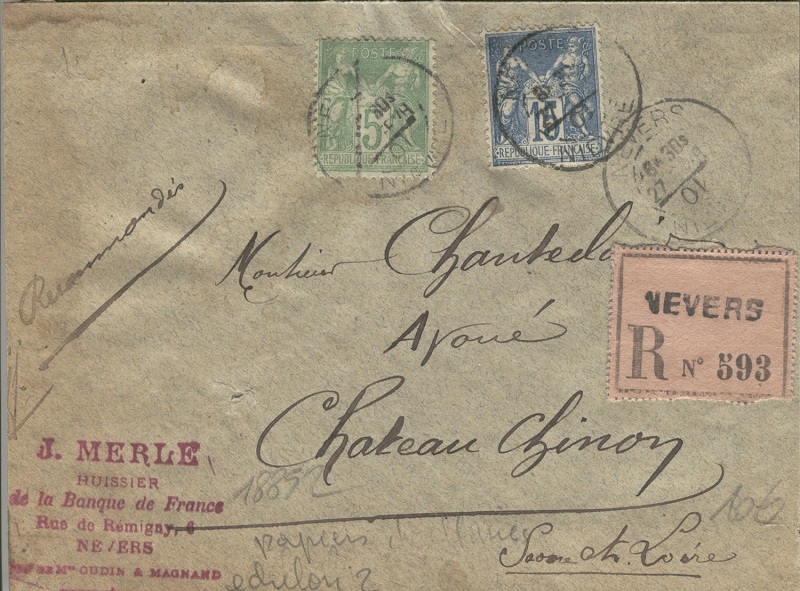 POSTE
5
REPUBLIQUE FRANÇAISE
POSTE
15
REPUBLIQUE FRANÇAISE
NEVERS
27
01
Recommandés
Monsieur
Avoué
Chateau Chinon
Saone et Loire
NEVERS
R N° 593
J. MERLE
HUISSIER
de la Banque de France
Rue de Rémigny, 6
NEVERS
OUDIN & MAGNAND
18652
papiers